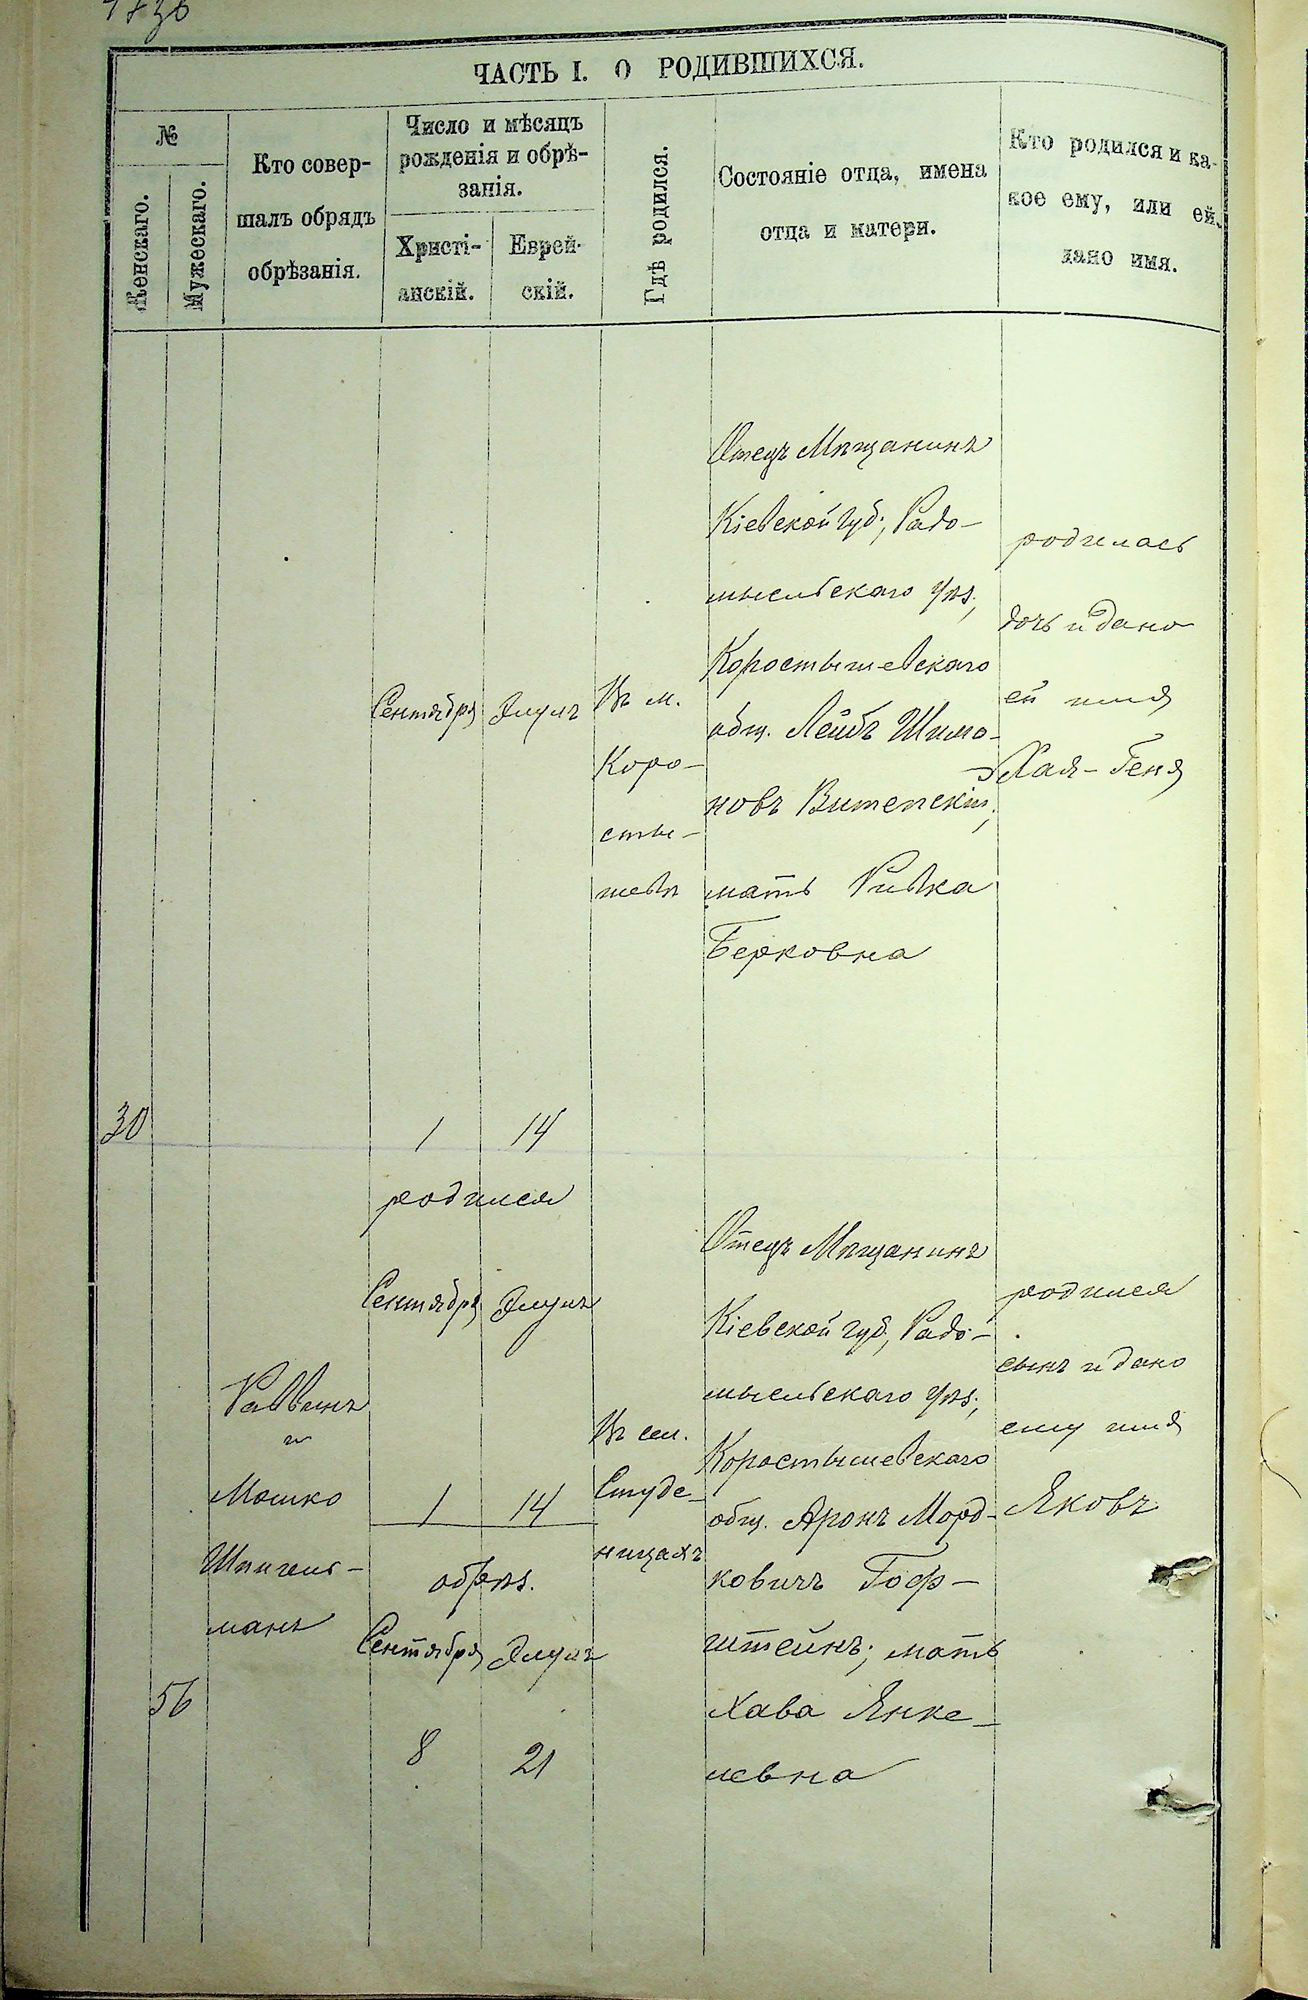 1836
ЧАСТЬ I. О РОДИВШИХСЯ.
№
Женскаго.
Мужескаго.
Кто совер-
шалъ обрядъ
обрѣзанія.
Число и мѣсяцъ
рожденія и обрѣ-
занія.
Христі-
анскій.
Еврей-
скій.
Гдѣ родился.
Состояніе отца, имена
отца и матери.
Кто родился и ка-
кое ему, или ей,
дано имя.
30
Сентября
1
Элулъ
14
Въ м.
Коро-
сты-
шевѣ
Отецъ Мѣщанинъ
Кіевской губ., Радо-
мысльскаго уѣз.,
Коростышевскаго
общ. Лейбъ Шимо-
новъ Витепскій;
мать Ривка
Берковна
родилась
дочь и дано
ей имя
Хая-Геня
56
Раввинъ
и
Мошко
Шпигель-
манъ
родился
Сентября
1
Элулъ
14
обрѣз.
Сентября
8
Элулъ
21
Въ сел.
Студе-
ницахъ
Отецъ Мѣщанинъ
Кіевской губ., Радо-
мысльскаго уѣз.,
Коростышевскаго
общ. Аронъ Морд-
ковичъ Гоф-
штейнъ; мать
Хава Янке-
левна
родился
сынъ и дано
ему имя
Яковъ